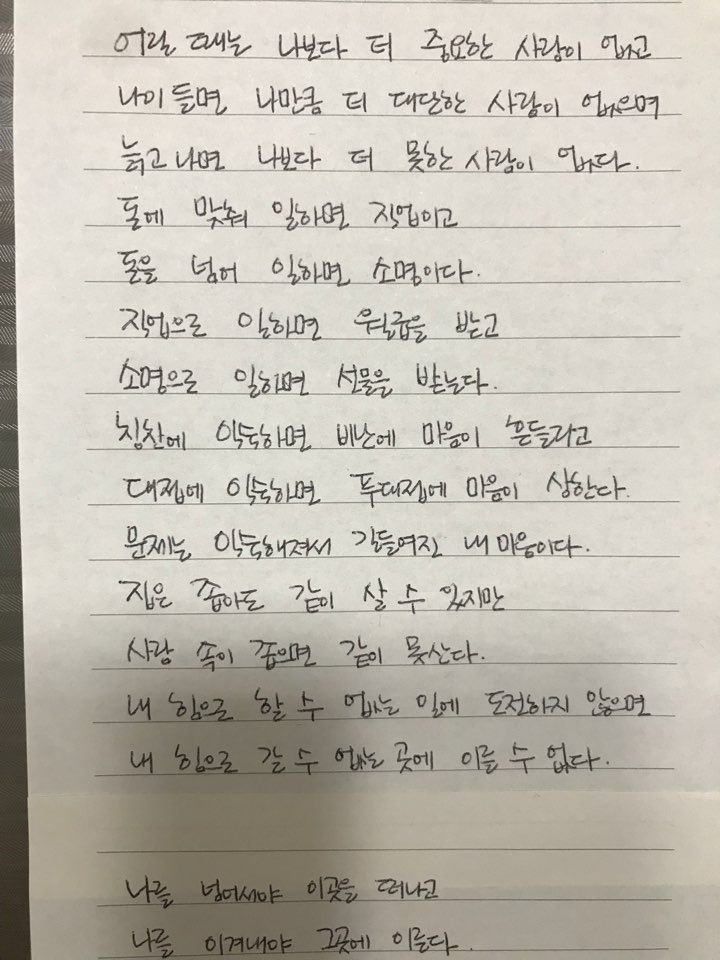 어릴 때는 나보다 더 중요한 사람이 없고
나이 들면 나만큼 더 대단한 사람이 없으며
늙고 나면 나보다 더 못한 사람이 없다.
돈에 맞춰 일하면 직업이고
돈을 넘어 일하면 소명이다.
직업으로 일하면 월급을 받고
소명으로 일하면 선물을 받는다.
칭찬에 익숙하면 비난에 마음이 흔들리고
대접에 익숙하면 푸대접에 마음이 상한다.
문제는 익숙해져서 길들여진 내 마음이다.
집은 좁아도 같이 살 수 있지만
사람 속이 좁으면 같이 못산다.
내 힘으로 할 수 없는 일에 도전하지 않으면
내 힘으로 갈 수 없는 곳에 이를 수 없다.
나를 넘어서야 이곳을 떠나고
나를 이겨내야 그곳에 이른다.